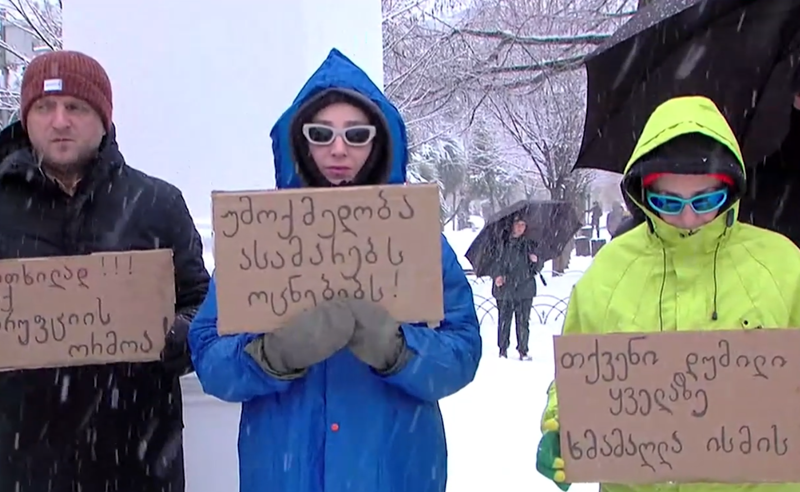 თხილად !!!
ქ
რუფციის
ორმოა!
უმოქმედობა
ასამარებს
ოცნებებს!
თქვენი დუმილი
ყველაზე
ხმამაღლა ისმის